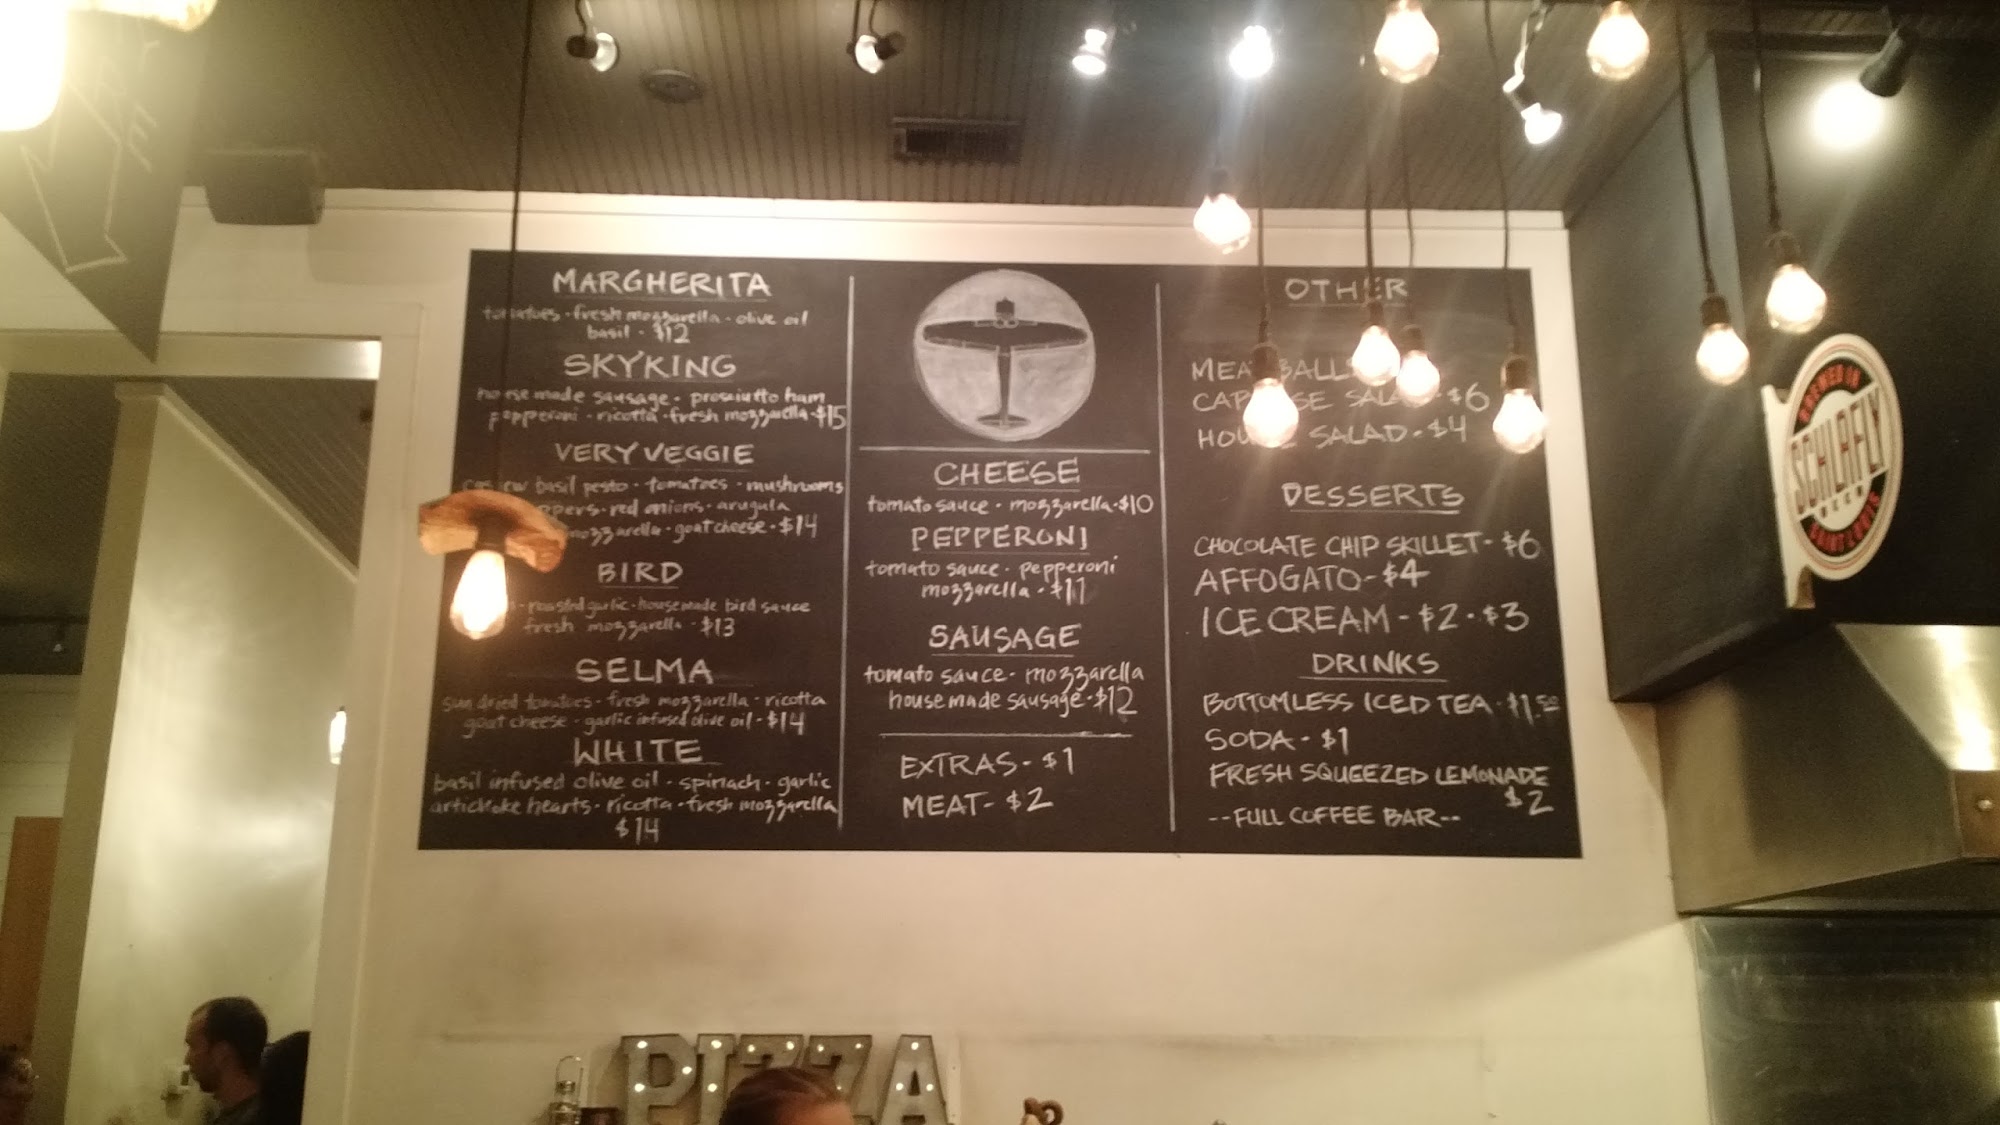 MARGHERITA
tomatoes - fresh mozzarella - olive oil
basil - $12
SKYKING
house made sausage - prosciutto ham
pepperoni - ricotta - fresh mozzarella - $15
VERY VEGGIE
cashew basil pesto - tomatoes - mushrooms
red onions - arugula
mozzarella - goat cheese - $14
BIRD
roasted garlic - housemade bird sauce
fresh mozzarella - $13
SELMA
sun dried tomatoes - fresh mozzarella - ricotta
goat cheese - garlic infused olive oil - $14
WHITE
basil infused olive oil - spinach - garlic
artichoke hearts - ricotta - fresh mozzarella
$14
CHEESE
tomato sauce - mozzarella - $10
PEPPERONI
tomato sauce - pepperoni
mozzarella - $11
SAUSAGE
tomato sauce - mozzarella
house made sausage - $12
EXTRAS - $1
MEAT - $2
OTHER
MEATBALLS
CAPRESE SALAD - $6
HOUSE SALAD - $4
DESSERTS
CHOCOLATE CHIP SKILLET - $6
AFFOGATO - $4
ICE CREAM - $2 - $3
DRINKS
BOTTOMLESS ICED TEA - $1.50
SODA - $1
FRESH SQUEEZED LEMONADE
$2
--FULL COFFEE BAR--
BREWED IN
SCHLAFLY
SAINT LOUIS
PIZZA